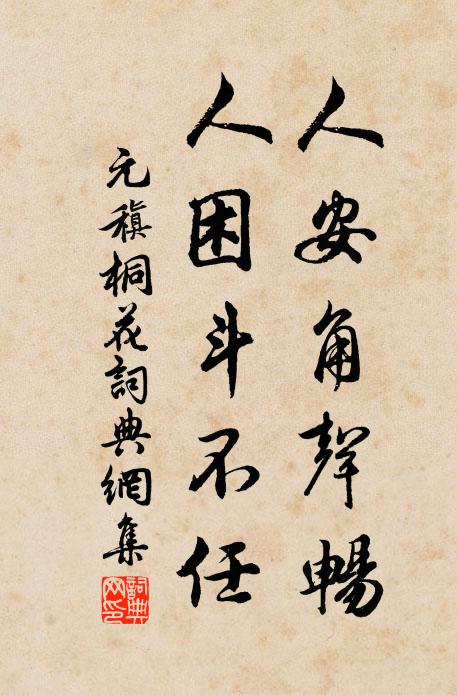 人安角聲暢
人困斗不任
元稹桐花詞典網集
詞典
网印